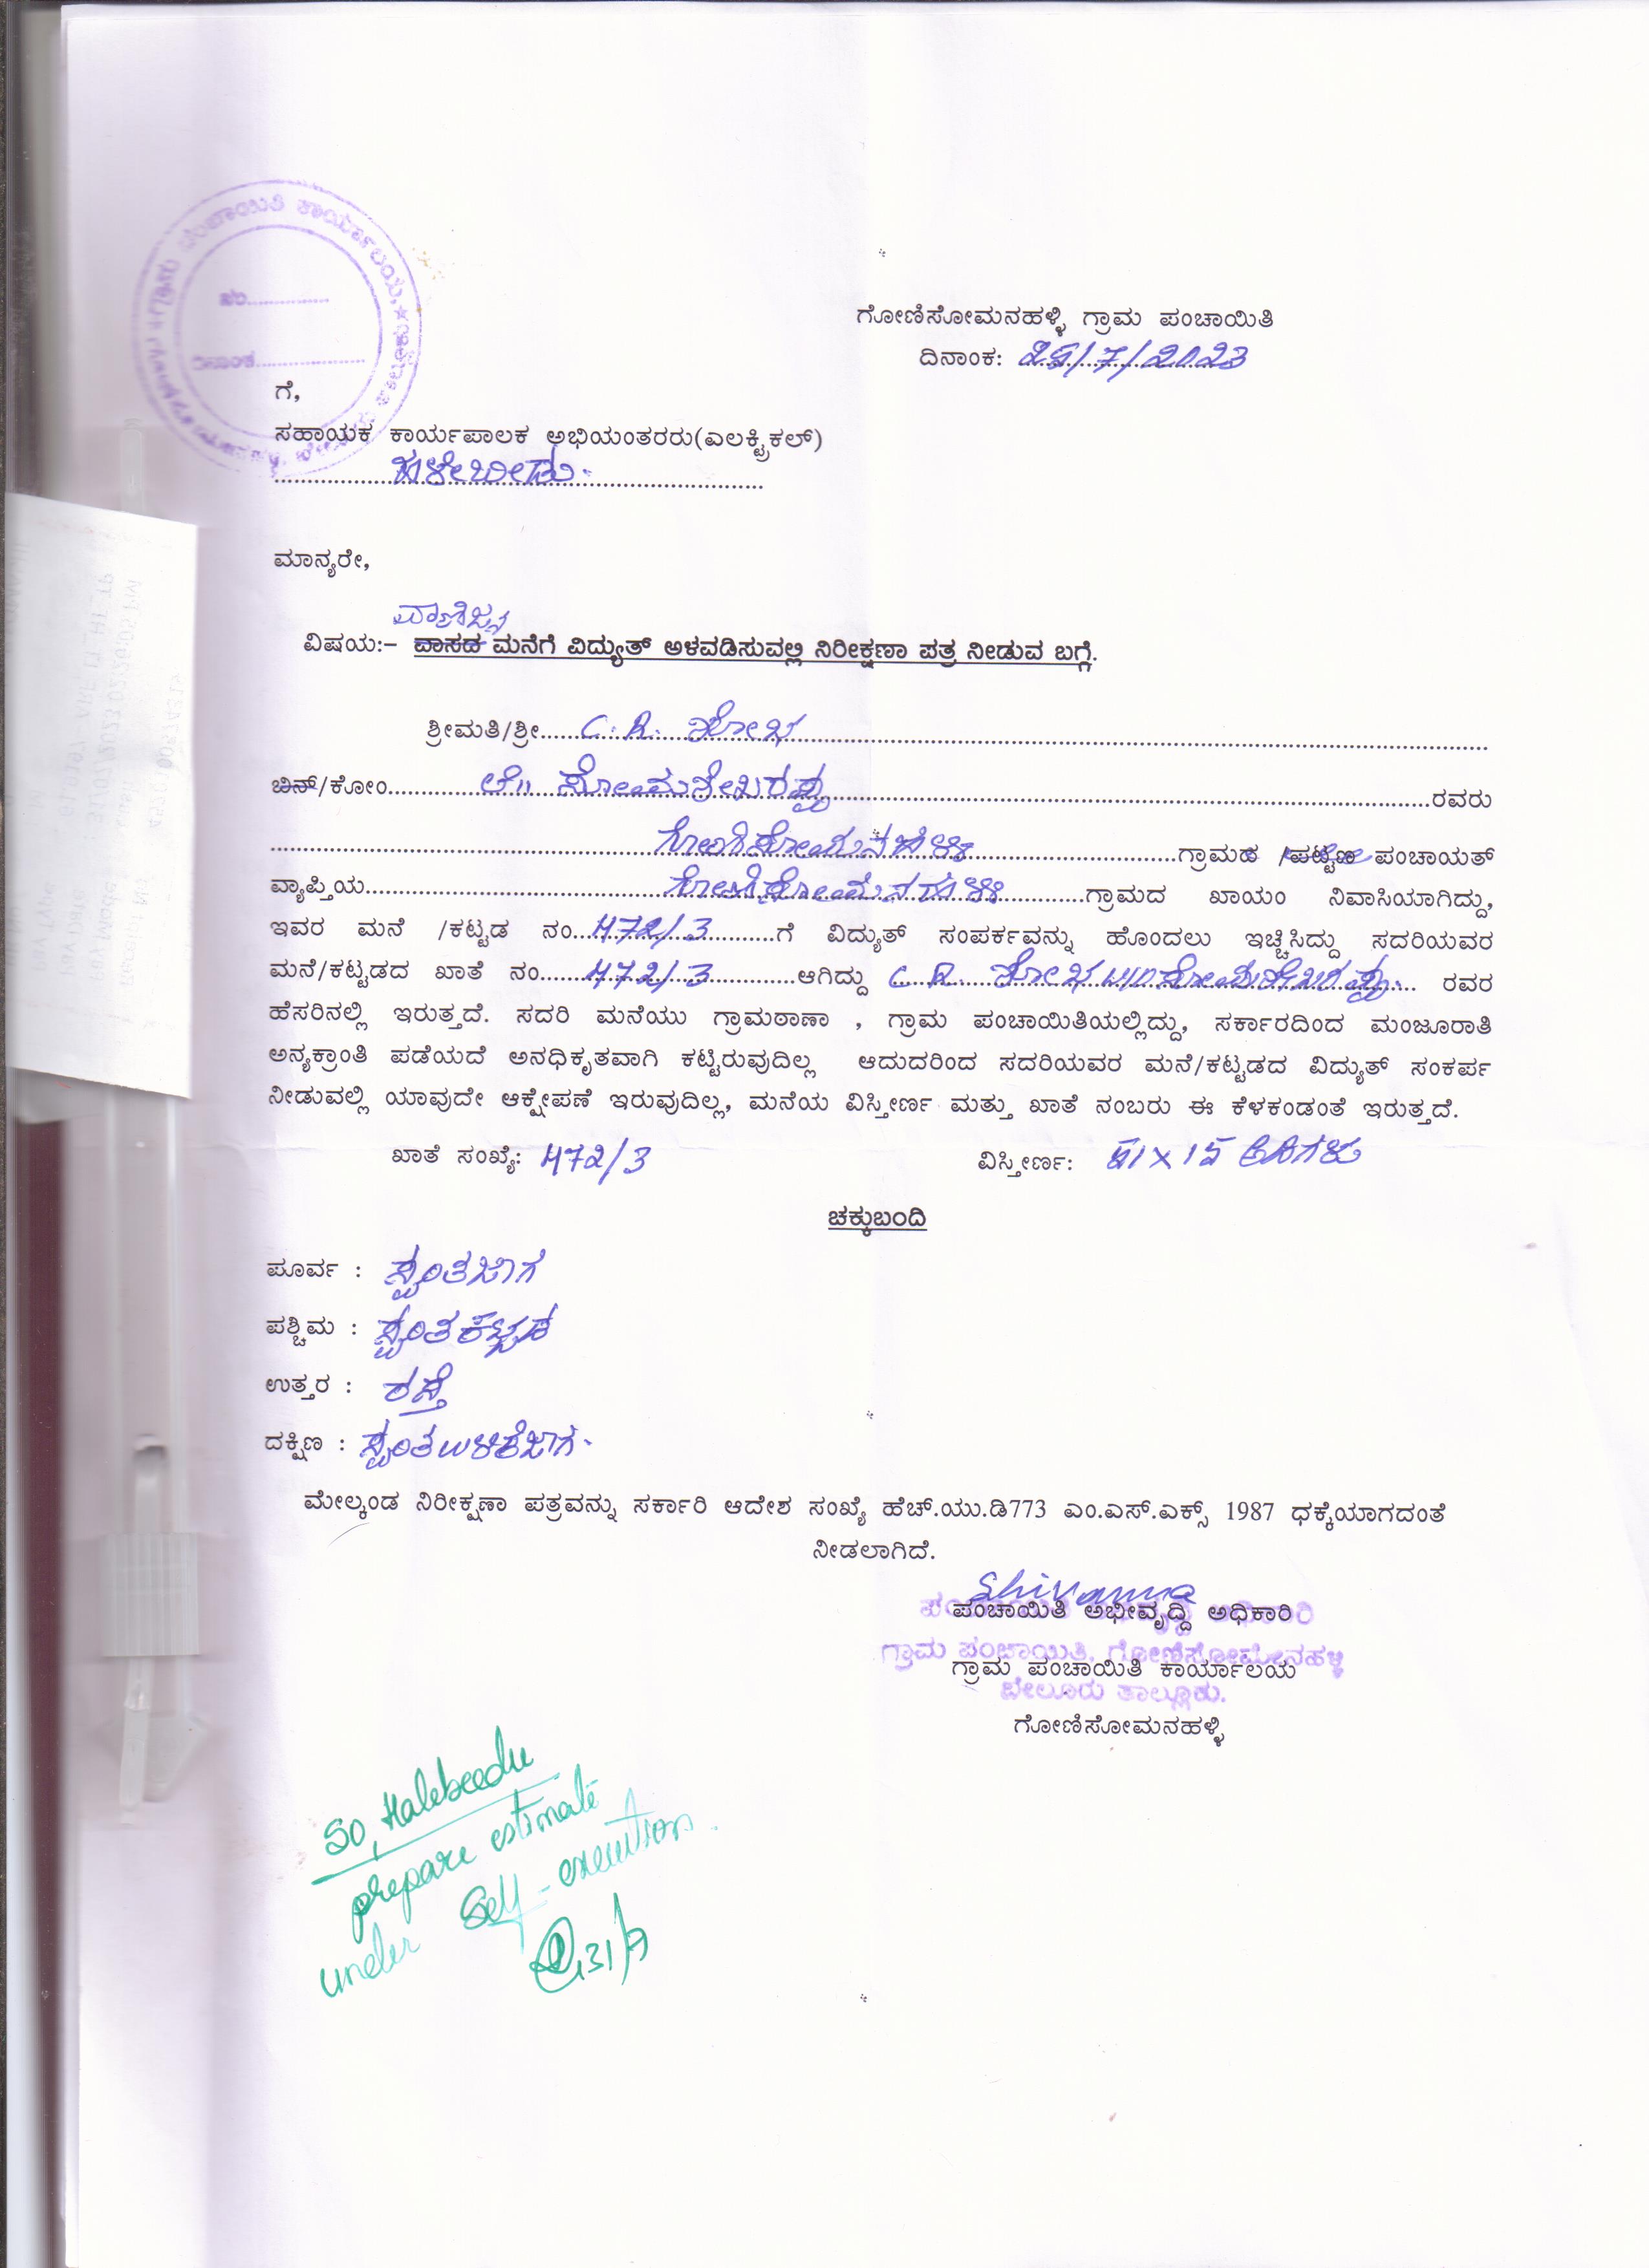 ಪಂಚಾಯಿತಿ ಕಾರ್ಯಾಲಯ,
ನಂ..................
ದಿನಾಂಕ..................
ಗೋಣಿಸೋಮನಹಳ್ಳಿ ಗ್ರಾಮ ಪಂಚಾಯಿತಿ
ದಿನಾಂಕ: 25/7/2023
ಗೆ,
ಸಹಾಯಕ ಕಾರ್ಯಪಾಲಕ ಅಭಿಯಂತರರು(ಎಲಕ್ಟ್ರಿಕಲ್)
ಹಳೇಬೀಡು.
ಮಾನ್ಯರೇ,
ವಾಣಿಜ್ಯ
ವಿಷಯ:– ವಾಸದ ಮನೆಗೆ ವಿದ್ಯುತ್ ಅಳವಡಿಸುವಲ್ಲಿ ನಿರೀಕ್ಷಣಾ ಪತ್ರ ನೀಡುವ ಬಗ್ಗೆ.
ಶ್ರೀಮತಿ/ಶ್ರೀ......C. R. ಶೋಭ......
ಬಿನ್/ಕೋಂ......ಲೇ|| ಸೋಮಶೇಖರಪ್ಪ......ರವರು
......ಗೋಣಿಸೋಮನಹಳ್ಳಿ......ಗ್ರಾಮದ /ಪಟ್ಟಣ ಪಂಚಾಯತ್
ವ್ಯಾಪ್ತಿಯ......ಗೋಣಿಸೋಮನಹಳ್ಳಿ......ಗ್ರಾಮದ ಖಾಯಂ ನಿವಾಸಿಯಾಗಿದ್ದು,
ಇವರ ಮನೆ /ಕಟ್ಟಡ ನಂ...472/3......ಗೆ ವಿದ್ಯುತ್ ಸಂಪರ್ಕವನ್ನು ಹೊಂದಲು ಇಚ್ಚಿಸಿದ್ದು ಸದರಿಯವರ
ಮನೆ/ಕಟ್ಟಡದ ಖಾತೆ ನಂ......472/3......ಆಗಿದ್ದು C R. ಶೋಭ W/O ಸೋಮಶೇಖರಪ್ಪ.... ರವರ
ಹೆಸರಿನಲ್ಲಿ ಇರುತ್ತದೆ. ಸದರಿ ಮನೆಯು ಗ್ರಾಮಠಾಣಾ , ಗ್ರಾಮ ಪಂಚಾಯಿತಿಯಲ್ಲಿದ್ದು, ಸರ್ಕಾರದಿಂದ ಮಂಜೂರಾತಿ
ಅನ್ಯಕ್ರಾಂತಿ ಪಡೆಯದೆ ಅನಧಿಕೃತವಾಗಿ ಕಟ್ಟಿರುವುದಿಲ್ಲ ಆದುದರಿಂದ ಸದರಿಯವರ ಮನೆ/ಕಟ್ಟಡದ ವಿದ್ಯುತ್ ಸಂಕರ್ಪ
ನೀಡುವಲ್ಲಿ ಯಾವುದೇ ಆಕ್ಷೇಪಣೆ ಇರುವುದಿಲ್ಲ, ಮನೆಯ ವಿಸ್ತೀರ್ಣ ಮತ್ತು ಖಾತೆ ನಂಬರು ಈ ಕೆಳಕಂಡಂತೆ ಇರುತ್ತದೆ.
ಖಾತೆ ಸಂಖ್ಯೆ: 472/3 ವಿಸ್ತೀರ್ಣ: 51 X 15 ಅಡಿಗಳು
ಚಕ್ಕುಬಂದಿ
ಪೂರ್ವ : ಸ್ವಂತ ಜಾಗ
ಪಶ್ಚಿಮ : ಸ್ವಂತ ಕಟ್ಟಡ
ಉತ್ತರ : ರಸ್ತೆ
ದಕ್ಷಿಣ : ಸ್ವಂತ ಉಳಿಕೆ ಜಾಗ.
ಮೇಲ್ಕಂಡ ನಿರೀಕ್ಷಣಾ ಪತ್ರವನ್ನು ಸರ್ಕಾರಿ ಆದೇಶ ಸಂಖ್ಯೆ ಹೆಚ್.ಯು.ಡಿ773 ಎಂ.ಎಸ್.ಎಕ್ಸ್ 1987 ಧಕ್ಕೆಯಾಗದಂತೆ
ನೀಡಲಾಗಿದೆ.
Shivanna
ಪಂಚಾಯಿತಿ ಅಭೀವೃದ್ದಿ ಅಧಿಕಾರಿ
ಗ್ರಾಮ ಪಂಚಾಯಿತಿ, ಗೋಣಿಸೋಮನಹಳ್ಳಿ
ಗ್ರಾಮ ಪಂಚಾಯಿತಿ ಕಾರ್ಯಾಲಯ
ಬೇಲೂರು ತಾಲ್ಲೂಕು.
ಗೋಣಿಸೋಮನಹಳ್ಳಿ
SO, Halebeedu
prepare estimate
under Self-execution.
31/7